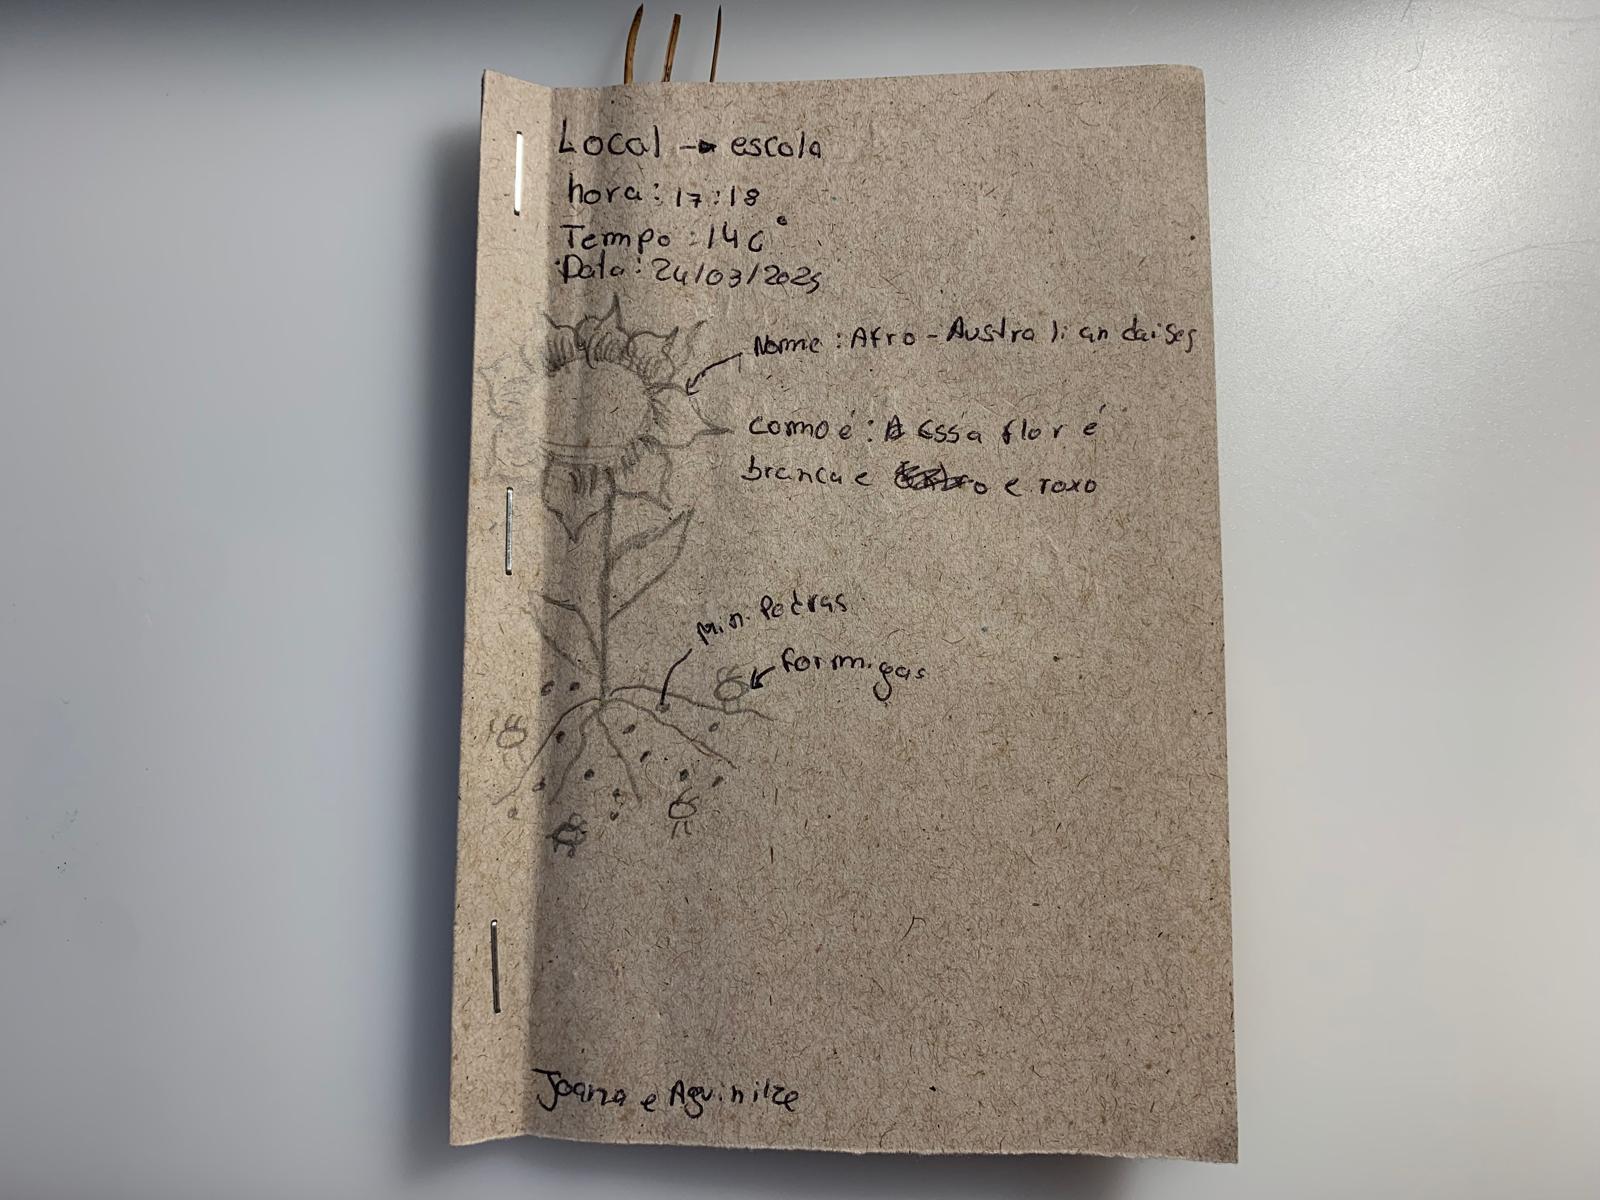 Local → escola
hora: 17:18
Tempo: 14 c°
Data: 24/03/2025
Nome: Afro-Australian daises
Como é: Essa flor é
branca e e roxo
min. Pedras
formigas
Joana e Aguinilze